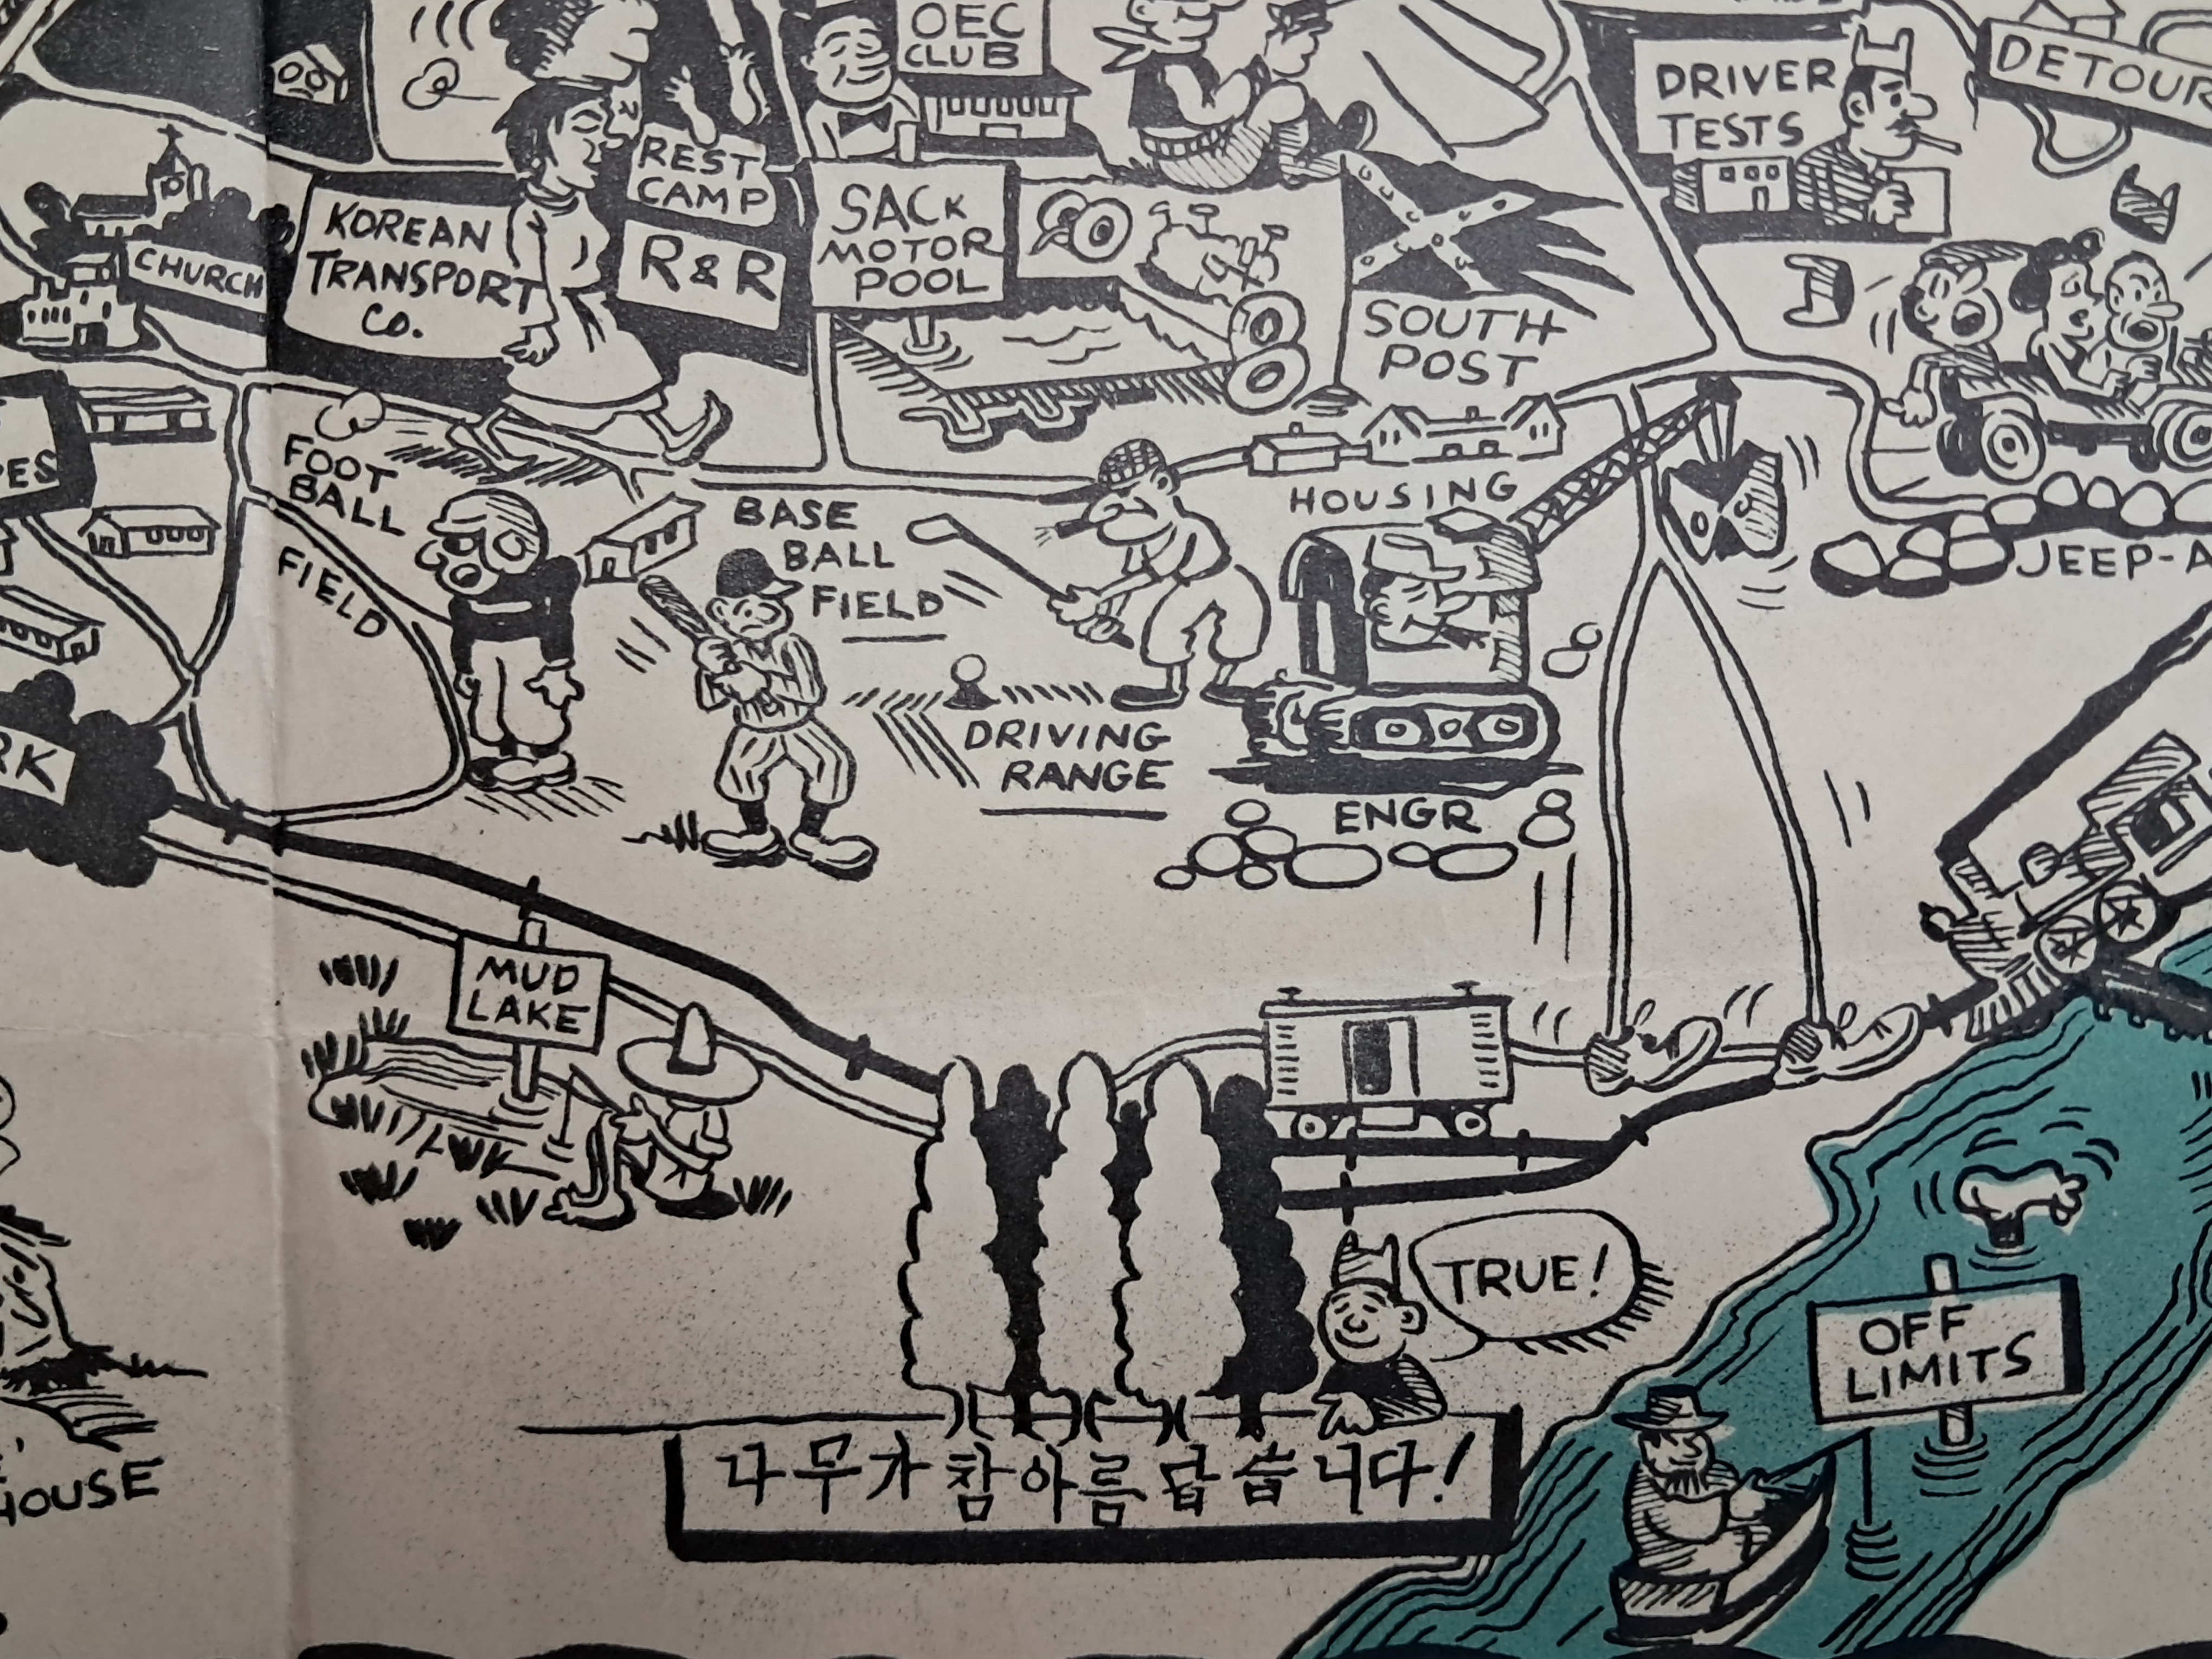 OEC
CLUB
DRIVER
TESTS
DETOUR
REST
CAMP
R & R
KOREAN
TRANSPORT
CO.
CHURCH
SACK
MOTOR
POOL
SOUTH
POST
FOOT
BALL
FIELD
BASE
BALL
FIELD
HOUSING
JEEP-A
DRIVING
RANGE
ENGR
MUD
LAKE
TRUE!
OFF
LIMITS
나무가 참아름답습니다!
HOUSE